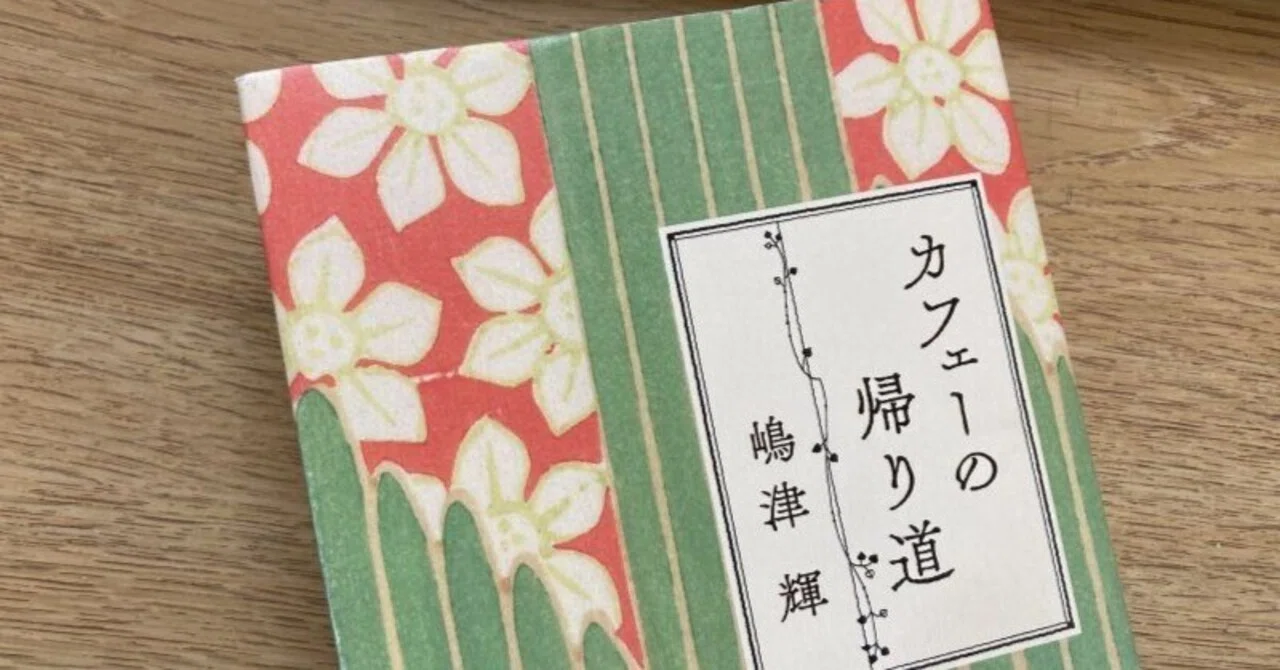 カフェーの
帰り道
嶋津 輝